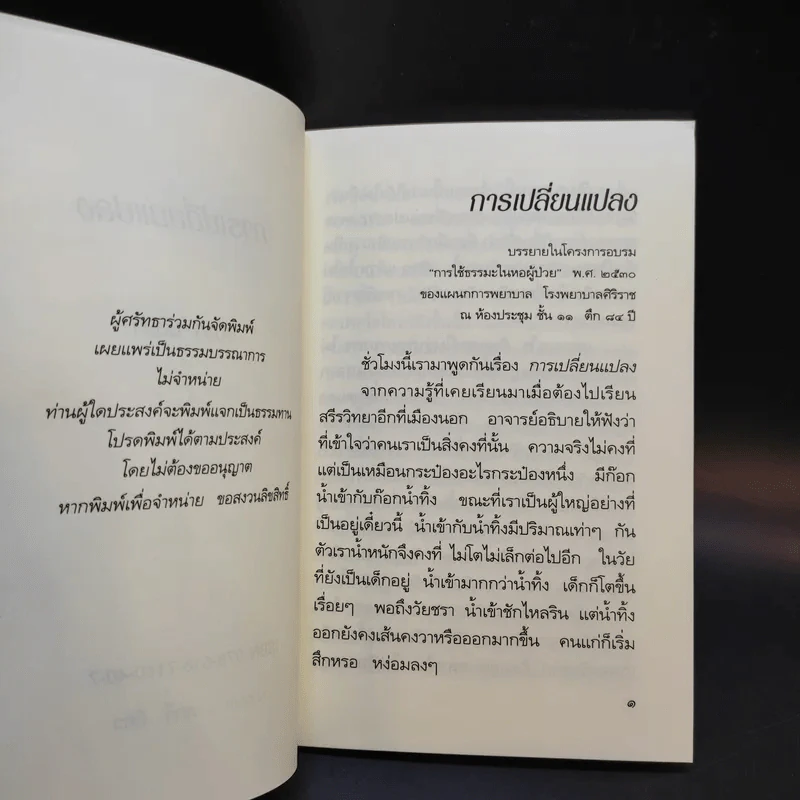 ผู้ศรัทธาร่วมกันจัดพิมพ์
เผยแพร่เป็นธรรมบรรณาการ
ไม่จำหน่าย
ท่านผู้ใดประสงค์จะพิมพ์แจกเป็นธรรมทาน
โปรดพิมพ์ได้ตามประสงค์
โดยไม่ต้องขออนุญาต
หากพิมพ์เพื่อจำหน่าย ขอสงวนลิขสิทธิ์
การเปลี่ยนแปลง
บรรยายในโครงการอบรม
“การใช้ธรรมะในหอผู้ป่วย” พ.ศ. ๒๕๓๐
ของแผนกการพยาบาล โรงพยาบาลศิริราช
ณ ห้องประชุม ชั้น ๑๑ ตึก ๘๔ ปี
ชั่วโมงนี้เรามาพูดกันเรื่อง การเปลี่ยนแปลง
จากความรู้ที่เคยเรียนมาเมื่อต้องไปเรียน
สรีรวิทยาอีกที่เมืองนอก อาจารย์อธิบายให้ฟังว่า
ที่เข้าใจว่าคนเราเป็นสิ่งคงที่นั้น ความจริงไม่คงที่
แต่เป็นเหมือนกระป๋องอะไรกระป๋องหนึ่ง มีก๊อก
น้ำเข้ากับก๊อกน้ำทิ้ง ขณะที่เราเป็นผู้ใหญ่อย่างที่
เป็นอยู่เดี๋ยวนี้ น้ำเข้ากับน้ำทิ้งมีปริมาณเท่าๆ กัน
ตัวเราน้ำหนักจึงคงที่ ไม่โตไม่เล็กต่อไปอีก ในวัย
ที่ยังเป็นเด็กอยู่ น้ำเข้ามากกว่าน้ำทิ้ง เด็กก็โตขึ้น
เรื่อยๆ พอถึงวัยชรา น้ำเข้าชักไหลริน แต่น้ำทิ้ง
ออกยังคงเส้นคงวาหรือออกมากขึ้น คนแก่ก็เริ่ม
สึกหรอ หง่อมลงๆ
๑